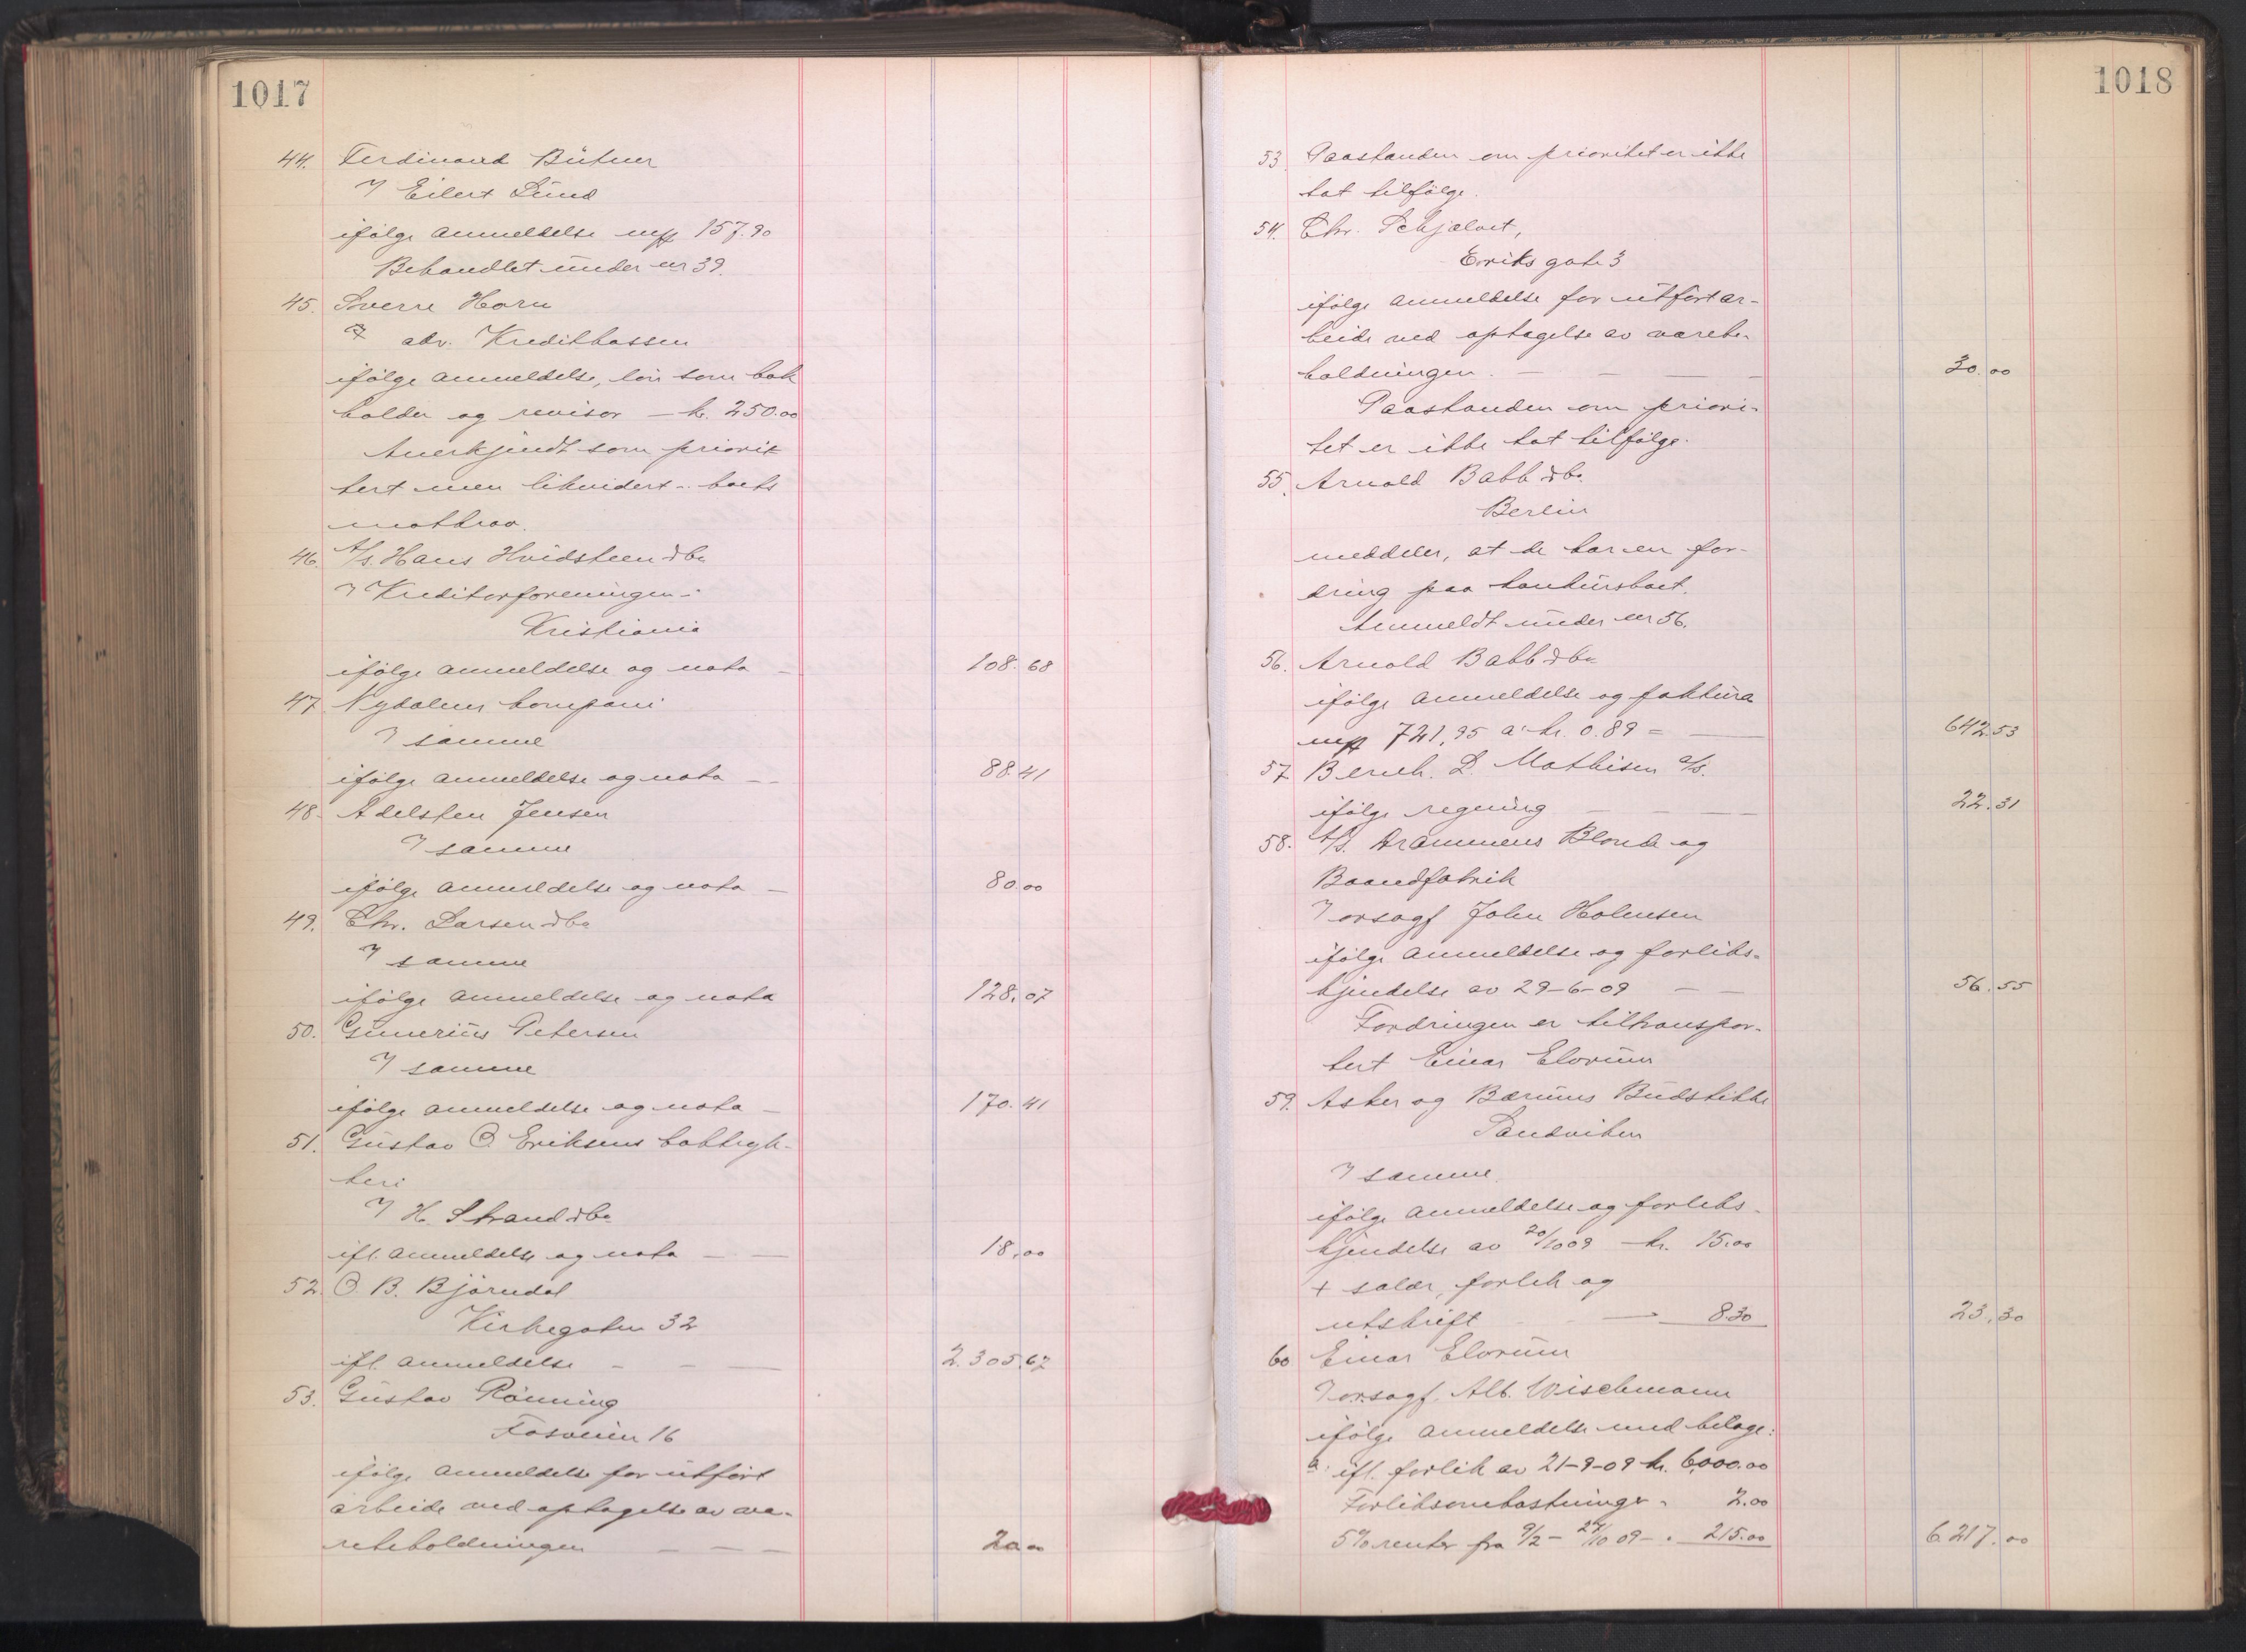 1017
44. Ferdinand Bütner
Eilert Lund
ifölge anmeldelse 157.90
Behandlet under nr 39.
45. Sverre Horn
adv. Kredithassen
ifölge anmeldelse, lön som bok
holder og revisor – kr. 250.00
Anerkjendt som priorit
tert men likvidert – boets
motkrav.
46. A/s. Hans Hvidsteen & Co
Kreditorforeningen i
Kristiania
ifölge anmeldelse og nota – 108.68
47 Nydalens kompani
samme
ifölge anmeldelse og nota – – 88.41
48. Adelsten Jensen
samme
ifölge anmeldelse og nota – 80.00
49. Chr. Larsen & Co
samme
ifölge anmeldelse og nota 128.07
50. Gunerius Petersen
samme
ifölge anmeldelse og nota – 170.41
51. Gustav O Eriksens boktryk-
keri
H. Strand & Co.
ifl. anmeldelse og nota – – 18,00
52. O. B. Björndal
Kirkegaten 32
ifl. anmeldelse – – – 2.305.67
53. Gustav Rönning
Fosveien 16
ifölge anmeldelse for utfört
arbeide ved optagelse av va-
rebeholdningen – – – 20.00
1018
53. Paastanden om prioritet er ikke
tat tilfölge.
54. Chr. Schjelvet,
Eriks gate 3
ifölge anmeldelse for utfört ar-
beide ved optagelse av varebe-
holdningen. – – – – 30.00
Paastanden om priori-
tet er ikke tat tilfölge.
55. Arnold Babb & Co.
Berlin
meddeler, at de har en for-
dring paa konkursboet.
Anmeldt under nr 56.
56. Arnold Babb & Co
ifölge anmeldelse og faktura
721,95 a kr. 0.89 = – 642.53
57 Bernh. L. Mathisen a/s.
ifölge regning – – – 22.31
58. A/s. Drammens Blonde og
Baandfabrik
v/ orsagf John Holmsen
ifölge anmeldelse og forliks-
kjendelse av 29–6–09 – – 56.55
Fordringen er tiltranspor-
tert Einar Elvrum
59. Asker og Bærums Budstikke
Sandviken
samme.
ifölge anmeldelse og forliks-
kjendelse av 20/10 09 – kr. 15.00
+ salær, forlik og
utskrift – 8.30 23.30
60 Einar Elvrum
v/ orsagf. Alb. Wischmann
ifölge anmeldelse med bilage:
a. ifl. forlik av 21–9–09 kr. 6,000.00
Forliksomkostninger " 2.00
5% renter fra 9/2 – 27/10 09 – " 215.00 6 217.00